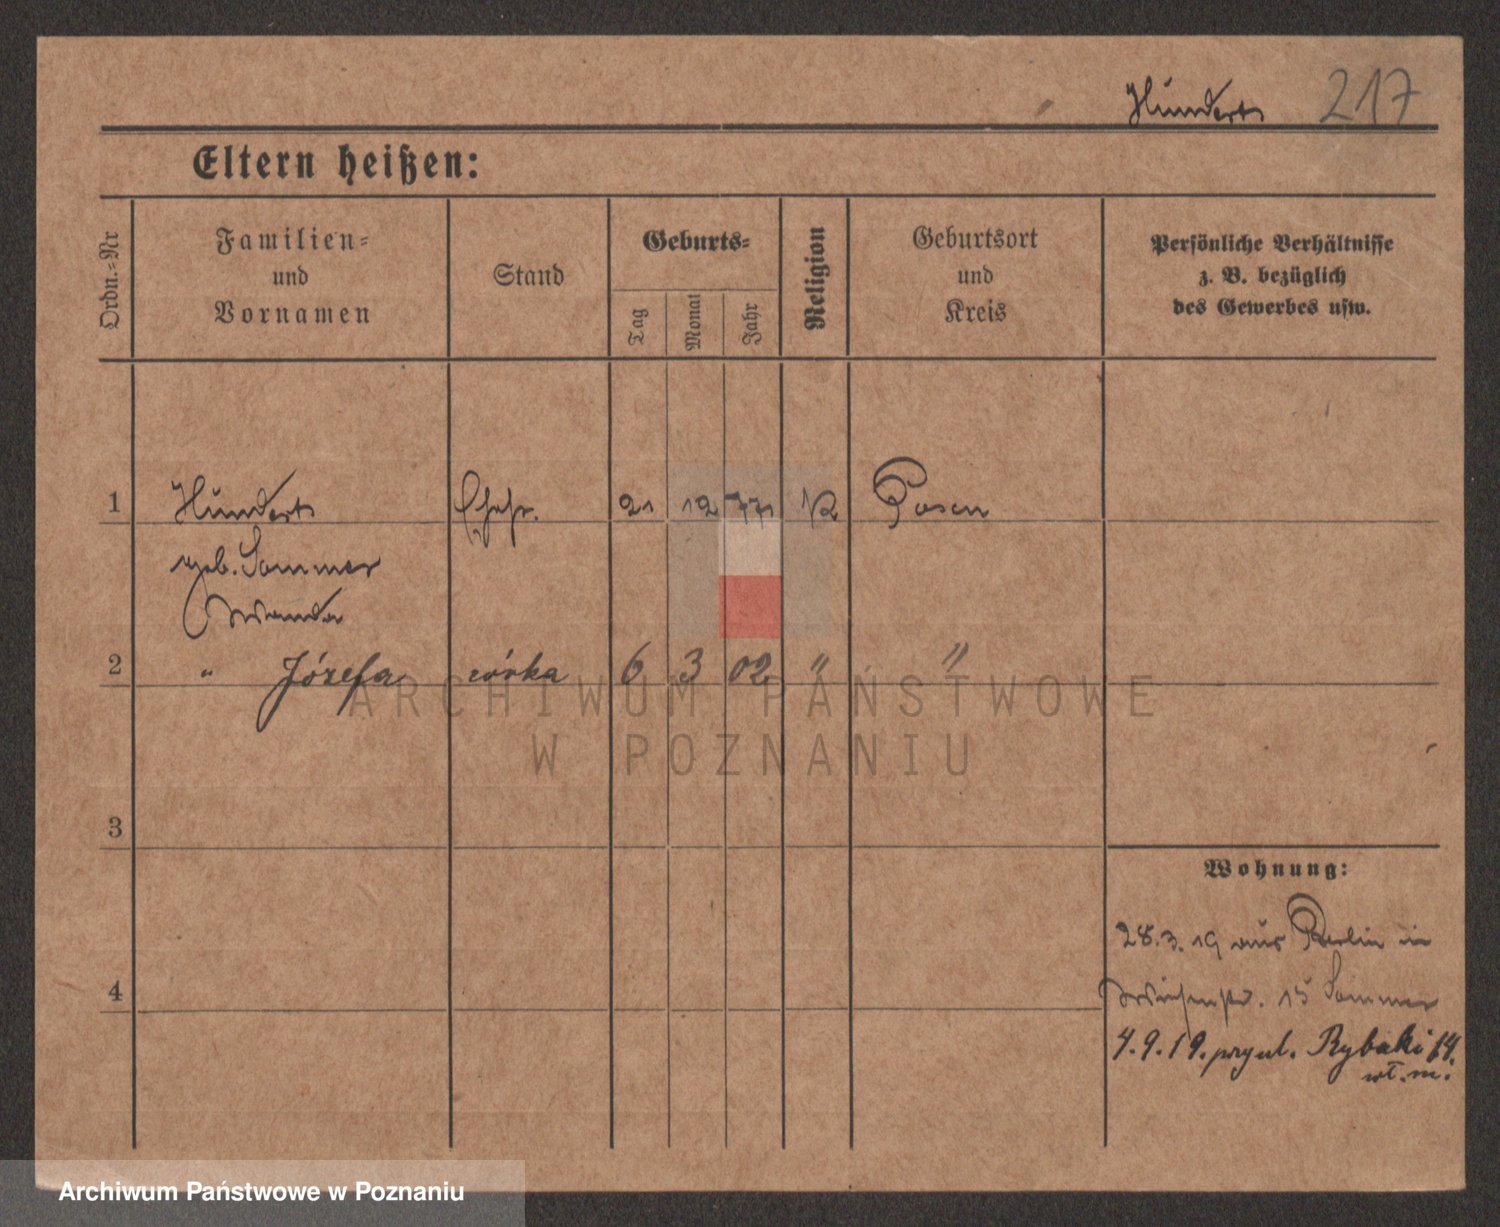 Hundert 217
Eltern heißen:
Ordn.-Nr
Familien-
und
Vornamen
Stand
Geburts-
Tag
Monat
Jahr
Religion
Geburtsort
und
Kreis
Persönliche Verhältnisse
z. B. bezüglich
des Gewerbes usw.
1 Hundert Ehefr. 21 12 77 K Posen
geb. Sommer
Wanda
2 " Józefa córka 6 3 02 " "
ARCHIWUM PAŃSTWOWE
W POZNANIU
3
Wohnung:
28.3.19 aus Berlin in
4
15 Sommer
4.9.19. przy ul. Rybaki 14.
wł. m.
Archiwum Państwowe w Poznaniu